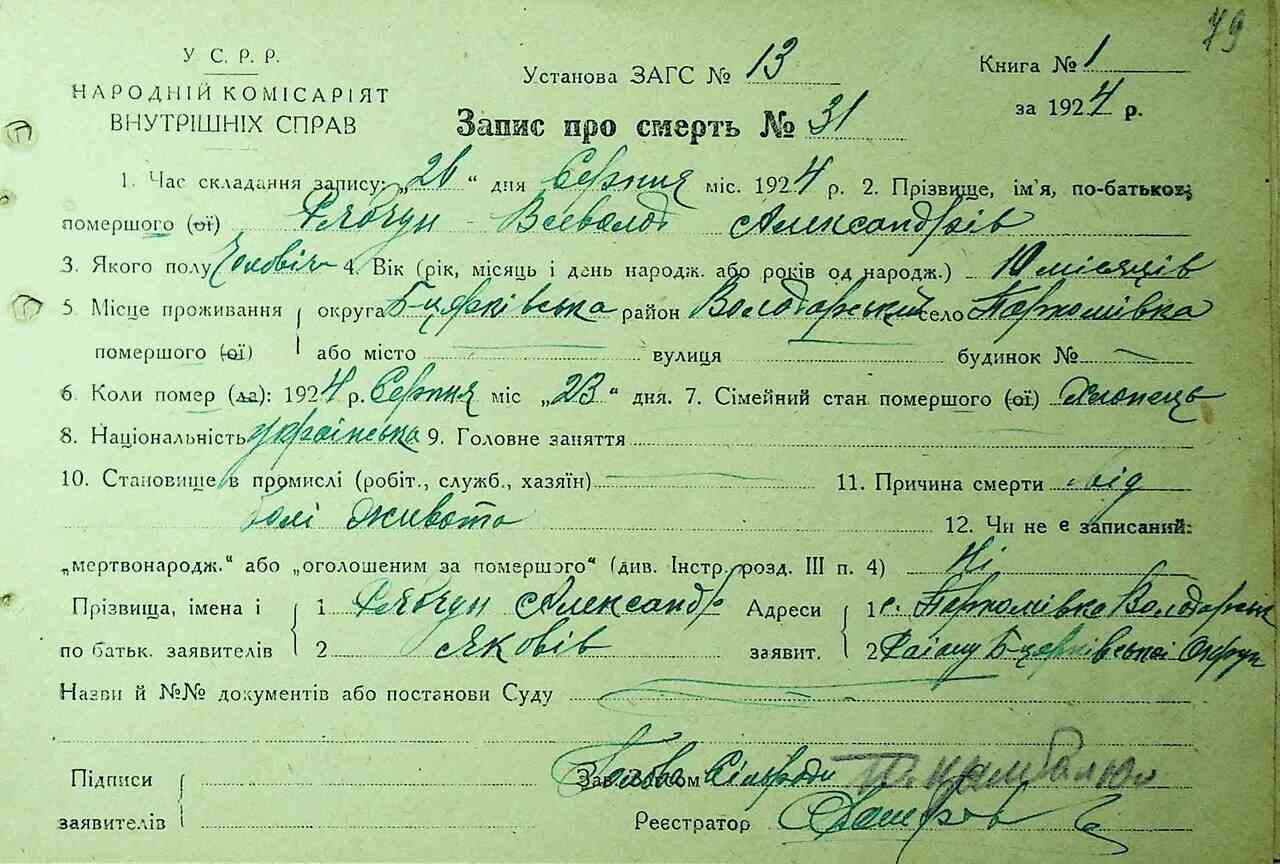 79
У С. Р. Р.
НАРОДНІЙ КОМІСАРІЯТ
ВНУТРІШНІХ СПРАВ
Установа ЗАГС № 13
Книга № 1
за 1924 р.
Запис про смерть № 31
1. Час складання запису: „26“ дня Серпня міс. 1924 р. 2. Прізвище, ім'я, по-батькові
помершого (ої) Рябчун Всеволод Александрів
3. Якого полу Чоловіч 4. Вік (рік, місяць і день народж. або років од народж.) 10 місяців
5 Місце проживання округа Б-церківська район Володарський село Пархомівка
помершого (ої) або місто вулиця будинок №
6 Коли помер (ла): 1924 р. Серпня міс „23“ дня. 7. Сімейний стан помершого (ої) хлопець
8. Національність українська 9. Головне заняття
10. Становище в промислі (робіт., служб., хазяїн) 11. Причина смерти від
болі живота 12. Чи не є записаний:
„мертвонародж.“ або „оголошеним за помершого“ (див. Інстр. розд. III п. 4) Ні
Прізвища, імена і 1 Рябчун Александр Адреси 1 с. Пархомівка Володарськ
по батьк. заявителів 2 Яковів заявит. 2 Району Б-церківської Округи
Назви й №№ документів або постанови Суду
Підписи Зав. Загсом Голова Сільради
заявителів Реєстратор